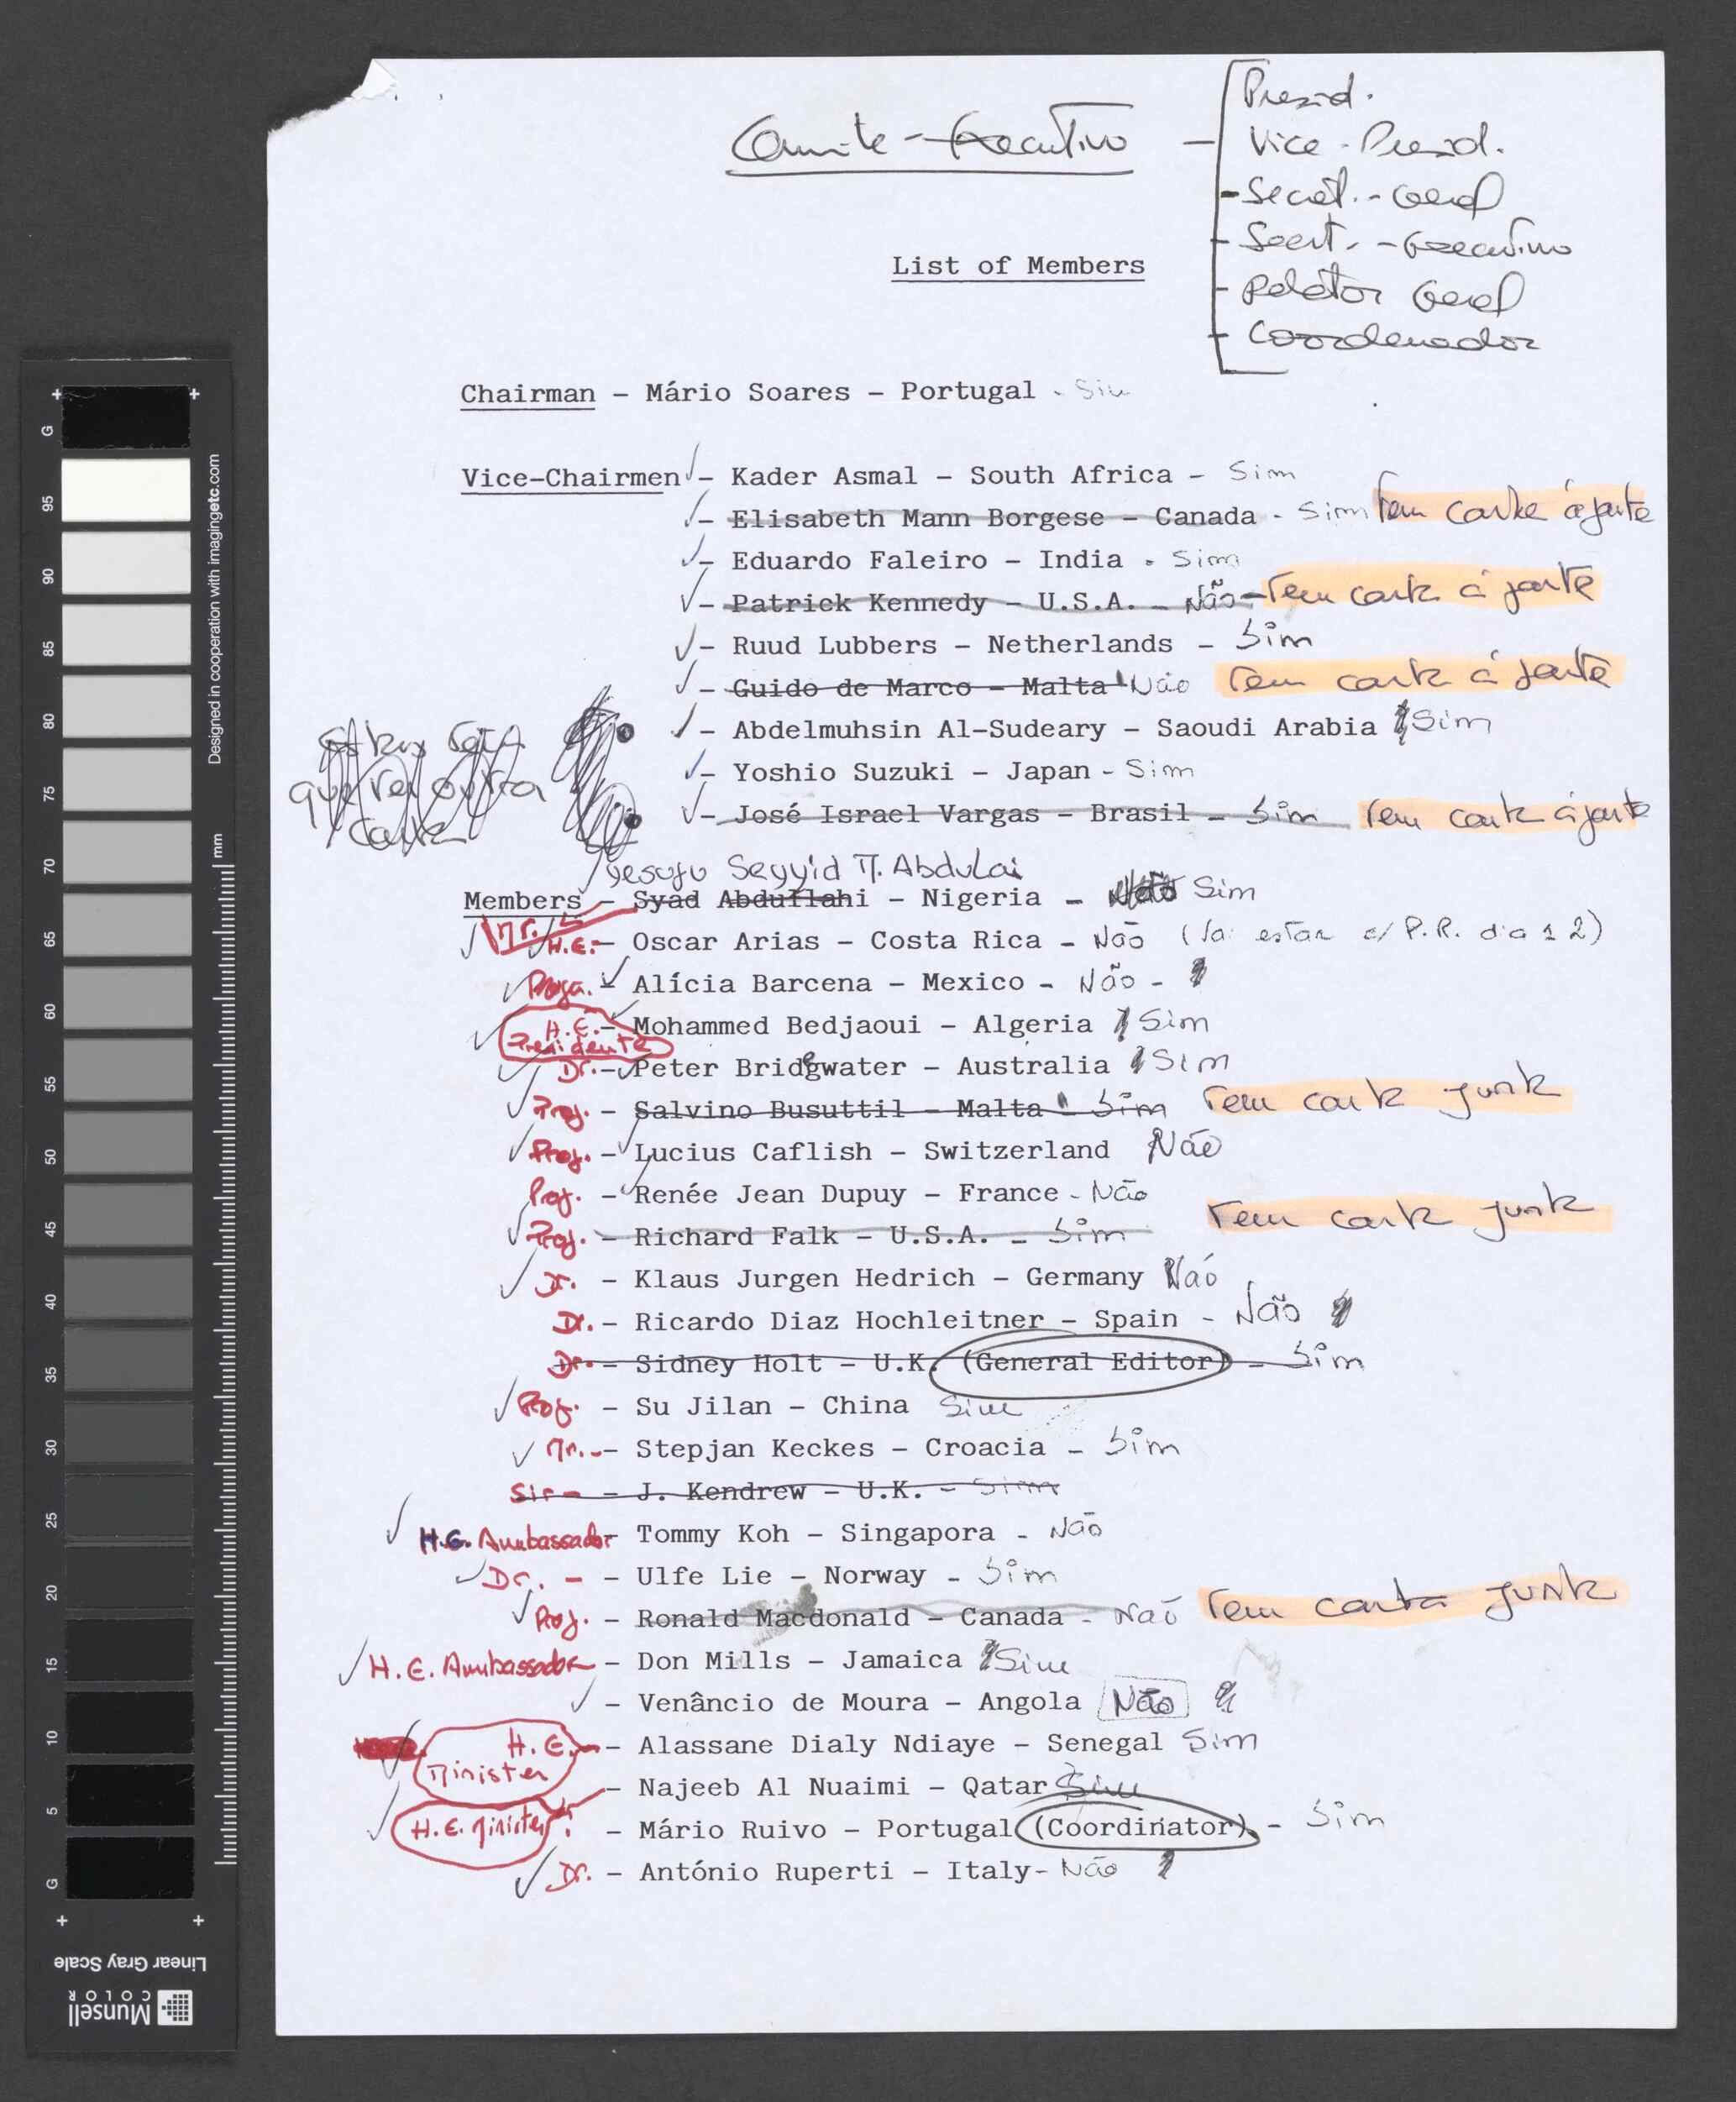 Comite-Executivo
Presid.
Vice-Presid.
- Secret.-Geral
- Secret.-Executivo
- Relator Geral
- Coordenador
List of Members
Chairman - Mário Soares - Portugal - Sim
Vice-Chairmen - Kader Asmal - South Africa - Sim
- Elisabeth Mann Borgese - Canada - Sim Tem carta à parte
- Eduardo Faleiro - India - Sim
- Patrick Kennedy - U.S.A. - Não - Tem carta à parte
- Ruud Lubbers - Netherlands - Sim
- Guido de Marco - Malta Não Tem carta à parte
- Abdelmuhsin Al-Sudeary - Saoudi Arabia Sim
- Yoshio Suzuki - Japan - Sim
- José Israel Vargas - Brasil - Sim Tem carta à parte
outra
carta
Seyyid M. Abdulai
Members - Syad Abdullahi - Nigeria - Não Sim
Mr. H.E. - Oscar Arias - Costa Rica - Não (Vai estar c/ P.R. dia 12)
- Alícia Barcena - Mexico - Não -
H.E. - Mohammed Bedjaoui - Algeria Sim
Presidente
Dr. - Peter Bridgewater - Australia Sim
Prof. - Salvino Busuttil - Malta - Sim Tem carta junta
Prof. - Lucius Caflish - Switzerland Não
Prof. - Renée Jean Dupuy - France - Não
Prof. - Richard Falk - U.S.A. - Sim Tem carta junta
Dr. - Klaus Jurgen Hedrich - Germany Não
Dr. - Ricardo Diaz Hochleitner - Spain - Não
Dr. - Sidney Holt - U.K. (General Editor) - Sim
Prof. - Su Jilan - China Sim
Mr. - Stepjan Keckes - Croacia - Sim
Sir - - J. Kendrew - U.K. - Sim
H.E. Ambassador - Tommy Koh - Singapora - Não
Dr. - - Ulfe Lie - Norway - Sim
Prof. - Ronald Macdonald - Canada - Não Tem carta junta
H.E. Ambassador - Don Mills - Jamaica Sim
- Venâncio de Moura - Angola Não
H.E. - Alassane Dialy Ndiaye - Senegal Sim
Minister
- Najeeb Al Nuaimi - Qatar Sim
H.E. Minister - Mário Ruivo - Portugal (Coordinator). - Sim
Dr. - António Ruperti - Italy - Não
Designed in cooperation with imagingetc.com
mm
G
95
90
85
80
75
70
65
60
55
50
45
40
35
30
25
20
15
10
5
G
Linear Gray Scale
Munsell
COLOR